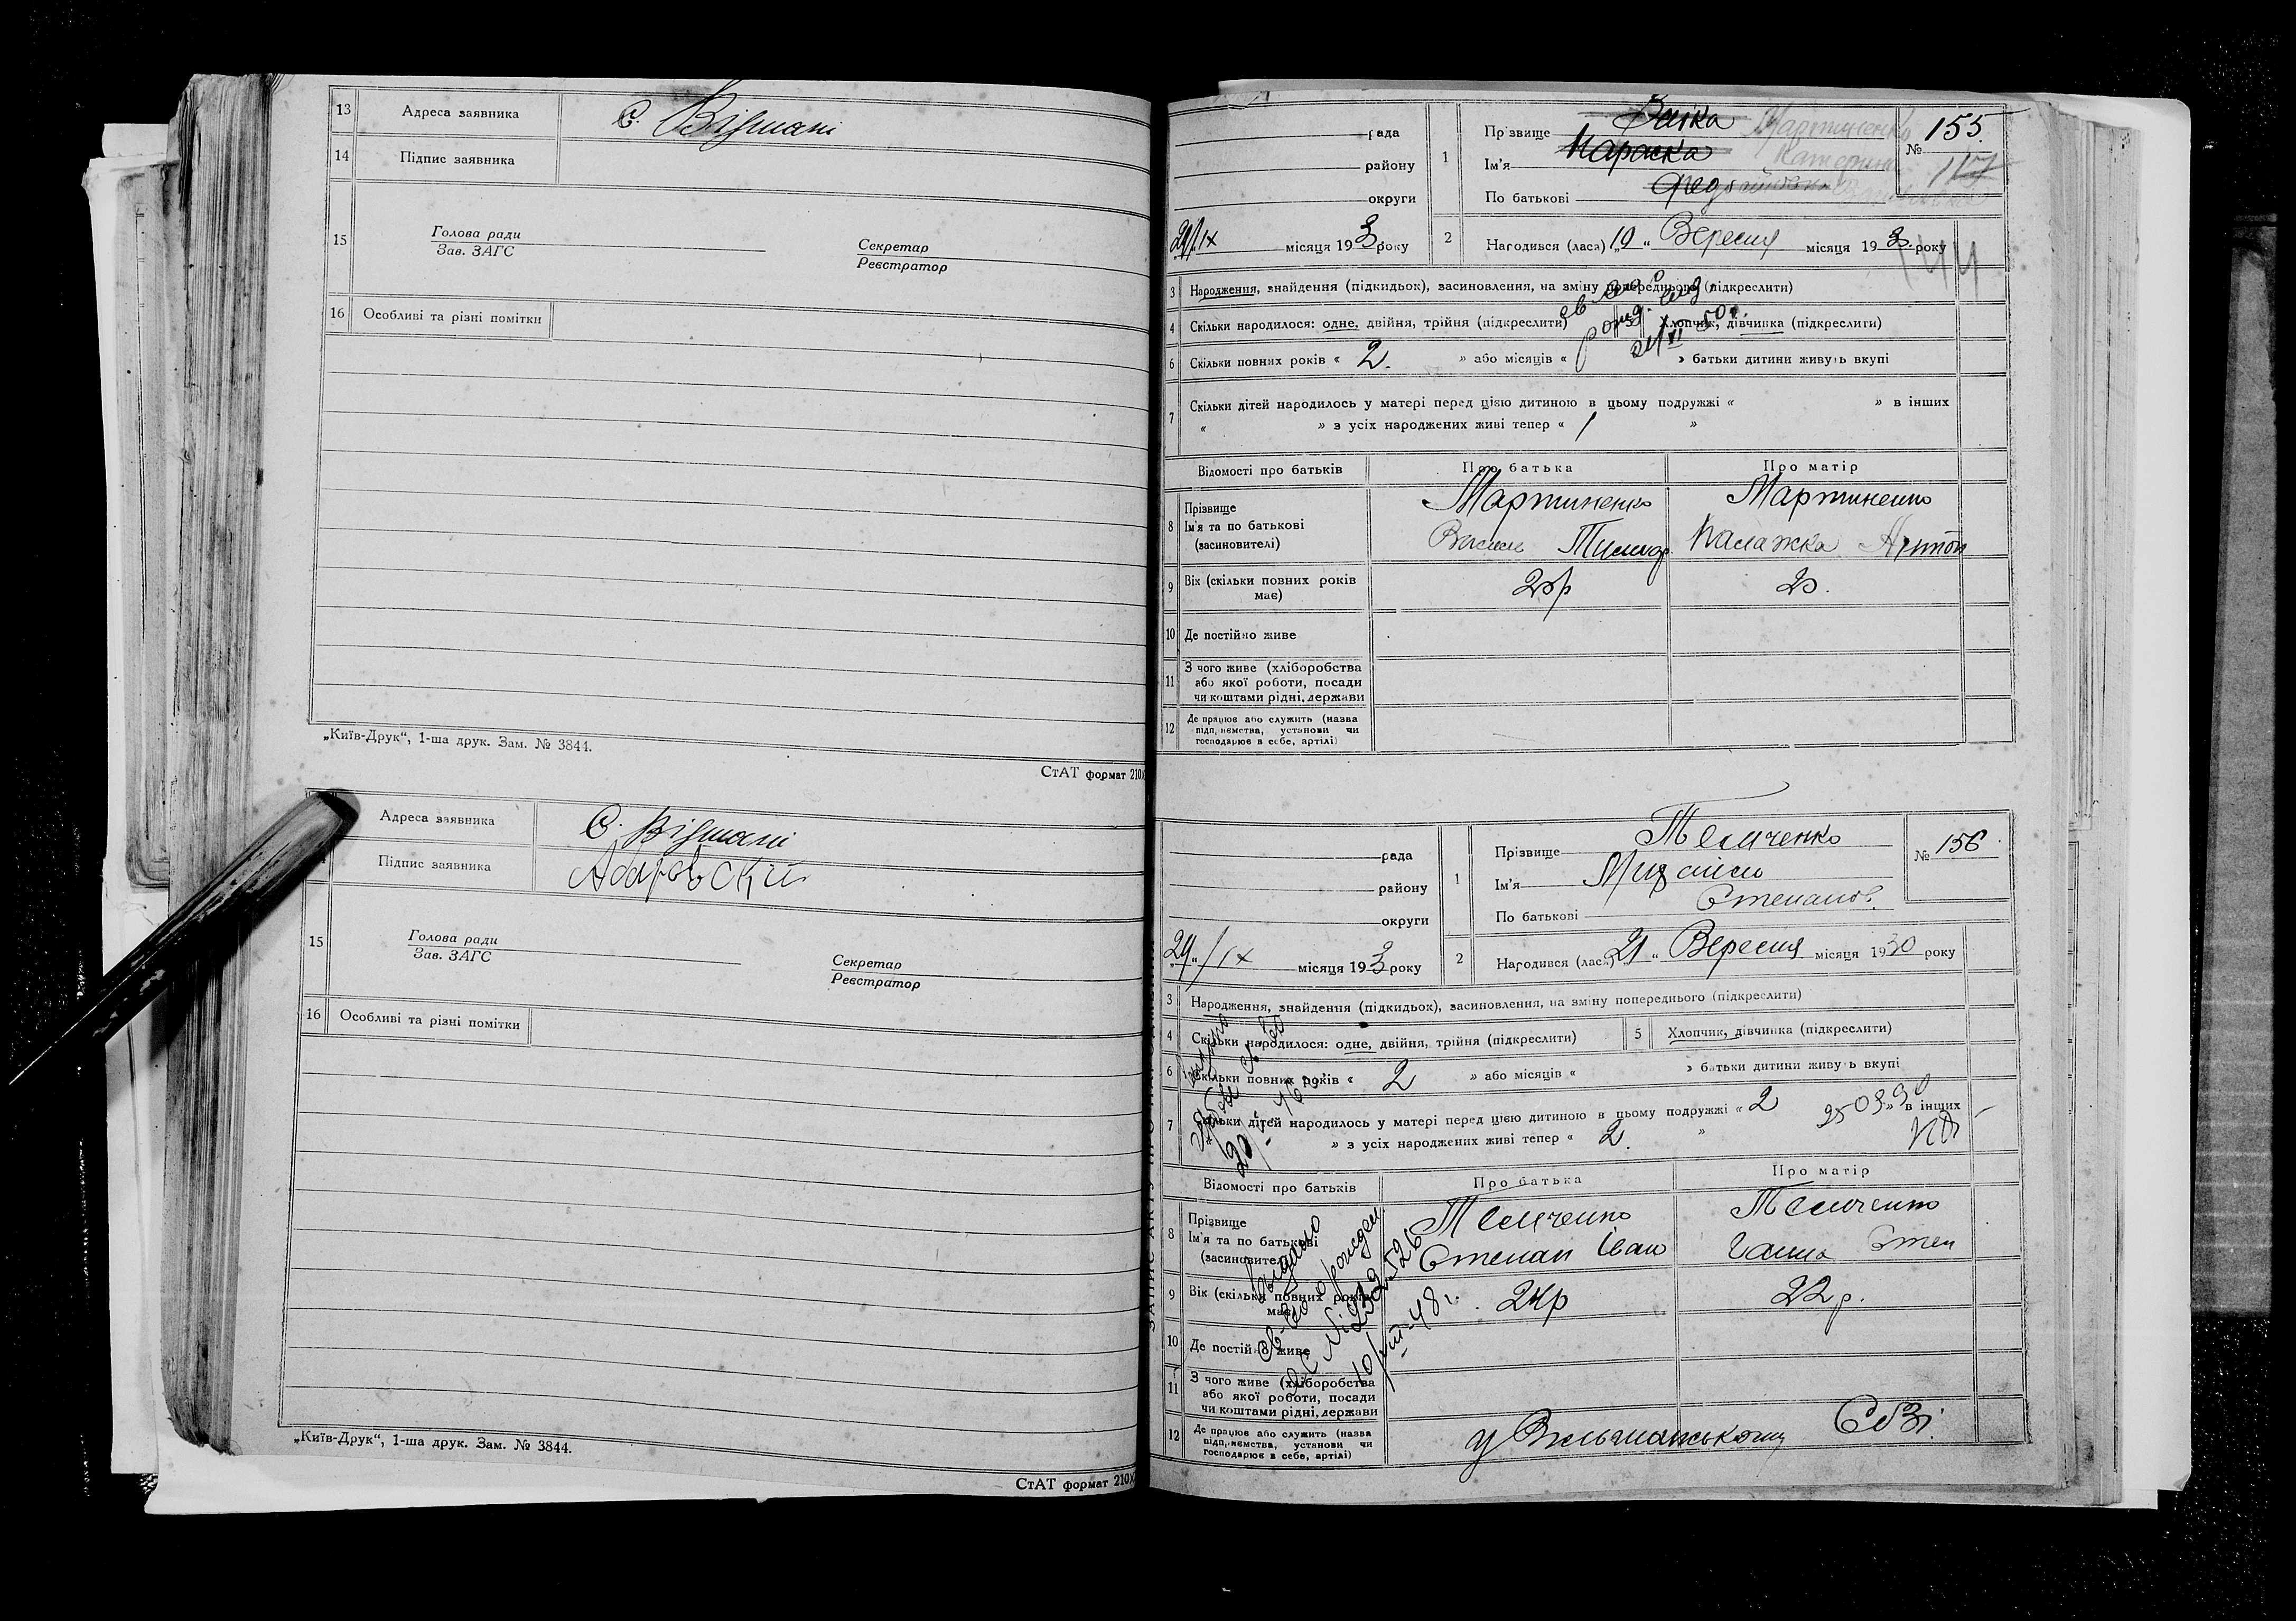 13 Адреса заявника с. Вільшані
14 Підпис заявника
15 Голова ради
Зав. ЗАГС
Секретар
Реєстратор
16 Особливі та різні помітки
„Київ-Друк“, 1-ша друк. Зам. № 3844.
СтАТ формат 210X
Адреса заявника с. Вільшані
Підпис заявника
15 Голова ради
Зав. ЗАГС
Секретар
Реєстратор
16 Особливі та різні помітки
„Київ-Друк“, 1-ша друк. Зам. № 3844.
СтАТ формат 210X
рада
району
округи
24/IX місяця 193 року
1 Прізвище Мартиненко
Ім'я Параска Катерина
По батькові
№ 155
2 Народився (лася) „19“ Вересня місяця 193 року
144
3 Народження, знайдення (підкидьок), засиновлення, на зміну попереднього (підкреслити)
4 Скільки народилося: одне, двійня, трійня (підкреслити) Хлопчик, дівчинка (підкреслити)
6 Скільки повних років « 2. » або місяців « » батьки дитини живуть вкупі
7 Скільки дітей народилось у матері перед цією дитиною в цьому подружжі « » в інших
« » з усіх народжених живі тепер « 1 »
Відомості про батьків Про батька Про матір
8 Прізвище
Ім'я та по батькові
(засиновителі)
Мартиненко
Василь Тимоф
Мартиненко
Палажка Антон
9 Вік (скільки повних років має) 20р 20.
10 Де постійно живе
11 З чого живе (хліборобства
або якої роботи, посади
чи коштами рідні, держави
12 Де працює або служить (назва
підприємства, установи чи
господарює в себе, артілі)
рада
району
округи
„24“/IX місяця 193 року
1 Прізвище Теличенко
Ім'я Михайло
По батькові Степанов.
№ 156
2 Народився (лася) 21 “ Вересня місяця 1930 року
3 Народження, знайдення (підкидьок), засиновлення, на зміну попереднього (підкреслити)
4 Скільки народилося: одне, двійня, трійня (підкреслити) 5 Хлопчик, дівчинка (підкреслити)
6 Скільки повних років « 2 » або місяців « » батьки дитини живуть вкупі
7 Скільки дітей народилось у матері перед цією дитиною в цьому подружжі « 2 » в інших
» з усіх народжених живі тепер « 2. »
Відомості про батьків Про батька Про матір
8 Прізвище
Ім'я та по батькові
(засиновителі)
Теличенко
Степан Іван
Теличенко
Ганна Степ
9 Вік (скільки повних років має) 24р 22р.
Видано
10/VIII-48г.
10 Де постійно живе
11 З чого живе (хліборобства
або якої роботи, посади
чи коштами рідні, держави
12 Де працює або служить (назва
підприємства, установи чи
господарює в себе, артілі)
у Вільшанському СОЗі